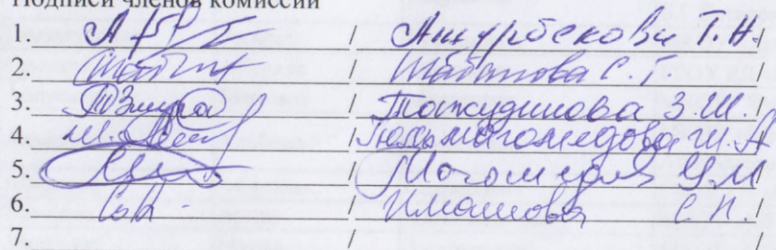 Подписи членов комиссии
1. / Ажурбекова Т.Н. /
2. / Шабанова С.Г. /
3. / Тажудинова З.Ш. /
4. / Гюльмагомедова Ш.А /
5. / Магомедова У.М /
6. / Имашова С.Н. /
7. / /